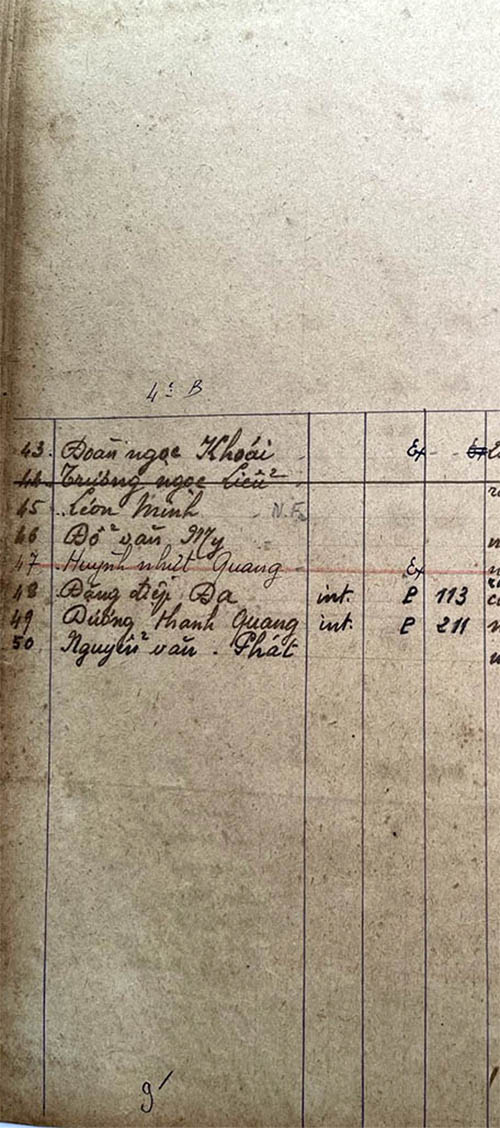 4e B
43. Đoàn ngọc Khoái Ex
44. Trương ngọc Liễu
45 Léon Minh N.F.
46 Đỗ văn My
47 Huỳnh nhứt Quang Ex
48 Đặng điệp Đa int. P 113
49 Dương thanh Quang int. P 211
50 Nguyễn văn Phát
9